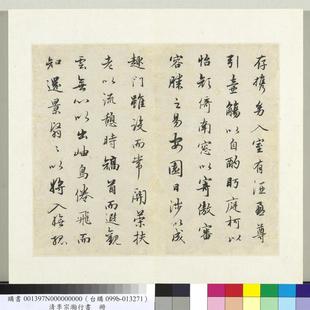 存攜幼入室有酒盈尊
引壺觴以自酌眄庭柯以
怡顏倚南窗以寄傲審
容膝之易安園日涉以成
趣門雖設而常關策扶
老以流憩時矯首而遐觀
雲無心以出岫鳥倦飛而
知還景翳翳以將入撫孤
購書 001397N000000000 (台購 099b-013271)
清李宗瀚行書 冊